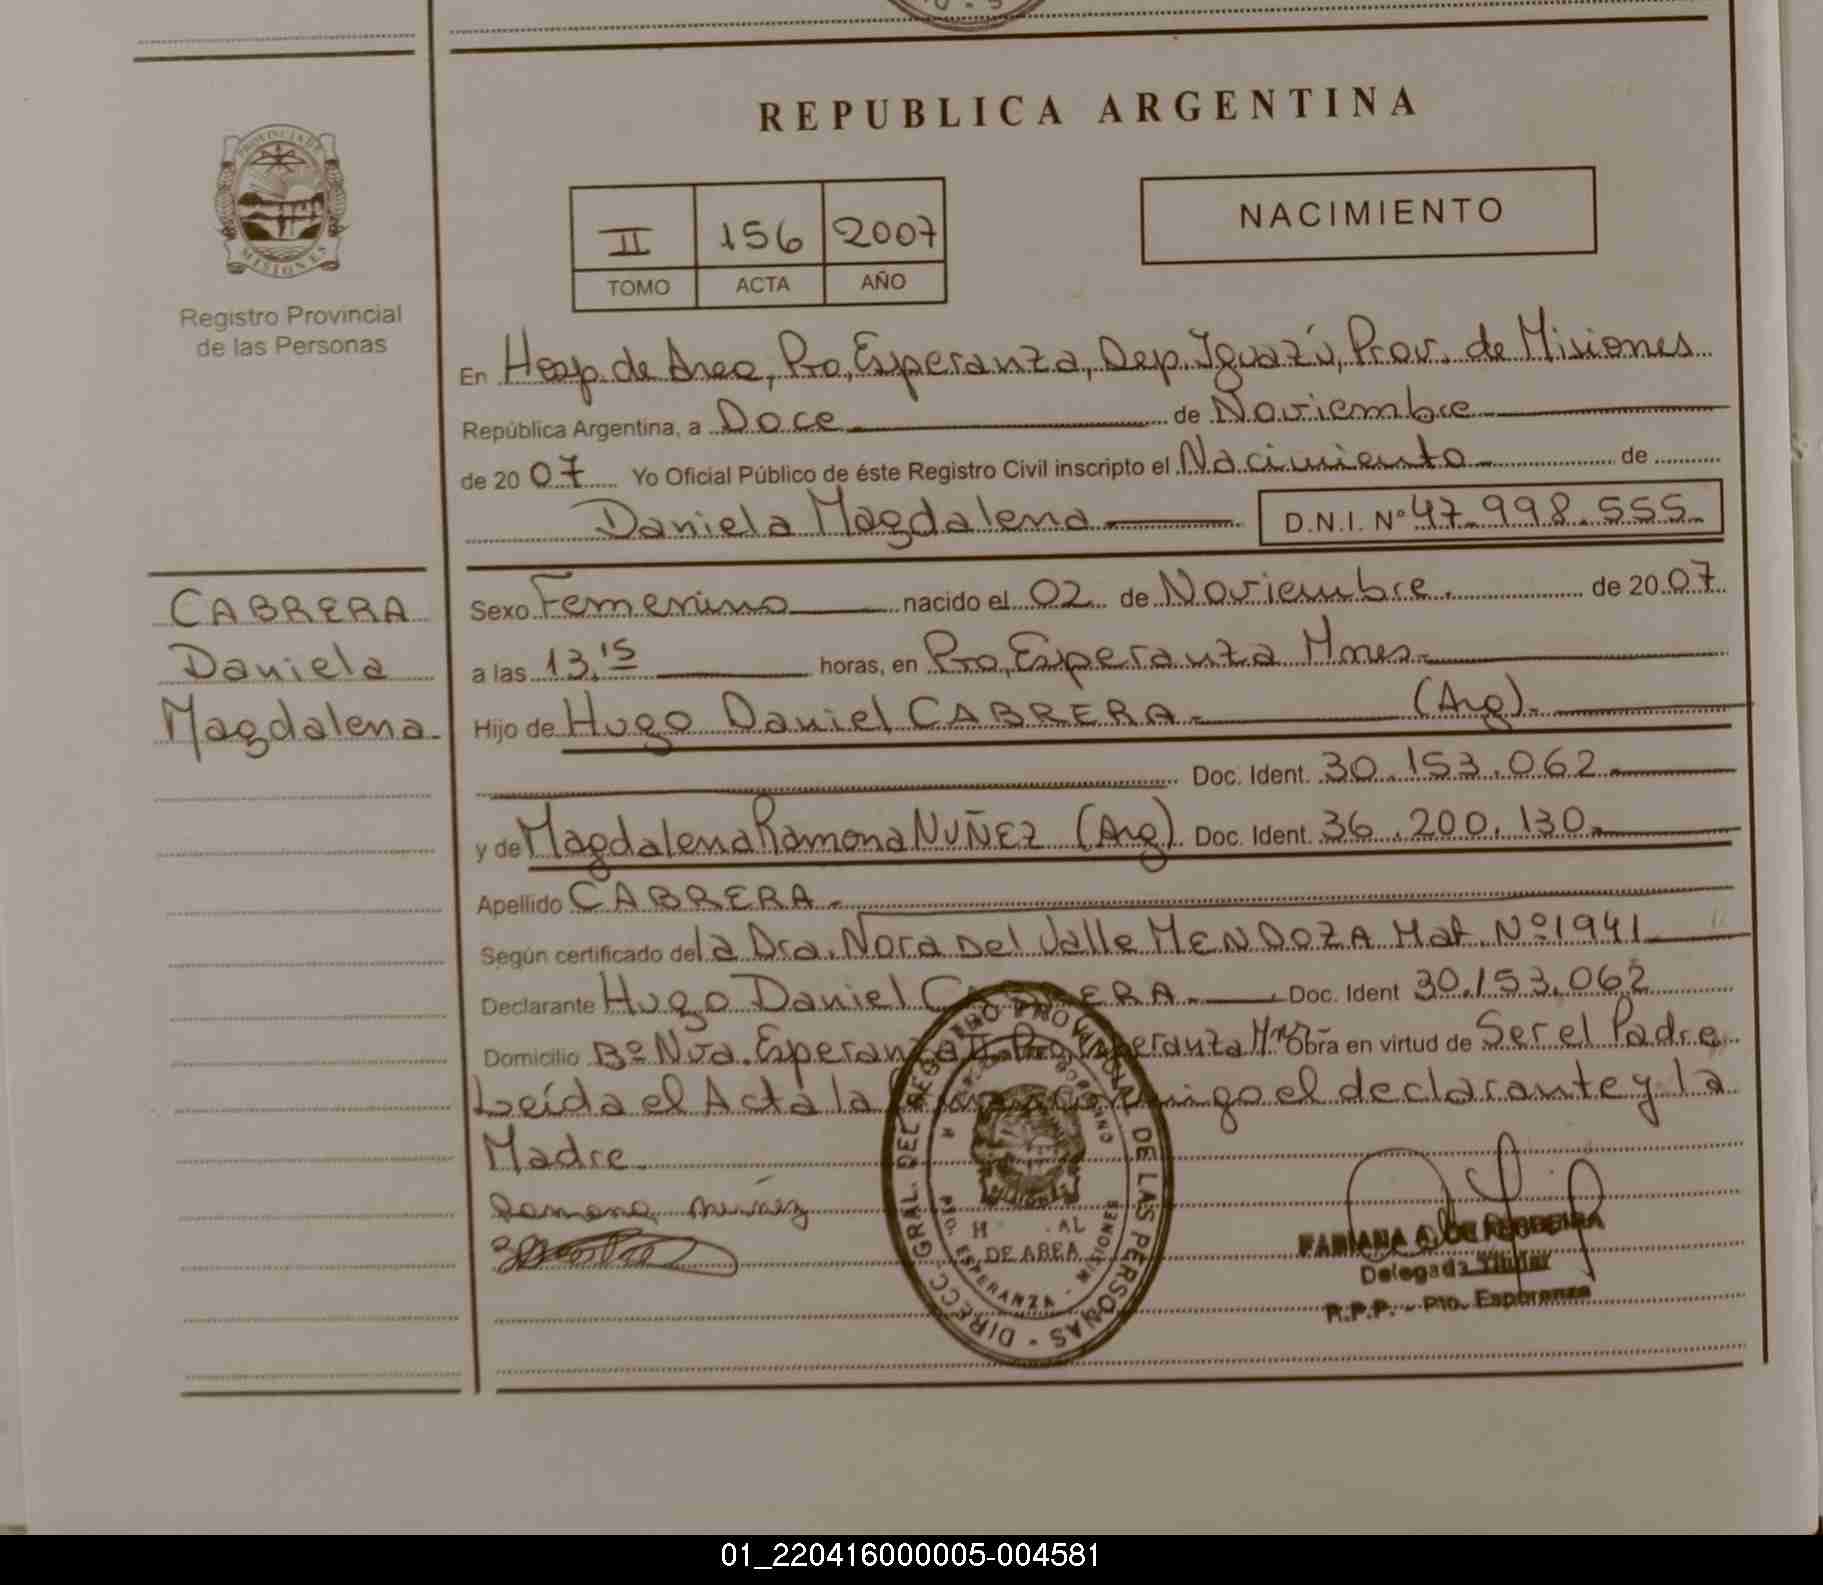 REPUBLICA ARGENTINA
PROVINCIA DE
MISIONES
Registro Provincial
de las Personas
II 156 2007
TOMO ACTA AÑO
NACIMIENTO
En Hosp. de Area, Pto, Esperanza, Dep. Iguazú, Prov. de Misiones
República Argentina, a Doce de Noviembre
de 2007 Yo Oficial Público de éste Registro Civil inscripto el Nacimiento de
Daniela Magdalena D.N.I. Nº 47.998.555
CABRERA
Daniela
Magdalena.
Sexo Femenino nacido el 02 de Noviembre. de 2007
a las 13.15 horas, en Pto, Esperanza Mnes.
Hijo de Hugo Daniel CABRERA. (Arg).
Doc. Ident. 30.153.062
y de Magdalena Ramona NUÑEZ (Arg). Doc. Ident. 36.200.130
Apellido CABRERA.
Según certificado de la Dra. Nora Del Valle MENDOZA Mat. Nº 1941
Declarante Hugo Daniel CABRERA. Doc. Ident 30.153.062
Domicilio Bº Nva. Esperanza II Pto Esperanza Mnes Obra en virtud de Ser el Padre
Leída el Acta la conmigo el declarante y la
Madre.
Ramona nuñez
DIRECC. GRAL. DEL REGISTRO PROVINCIAL DE LAS PERSONAS
DE AREA
PTO. ESPERANZA - MISIONES
FABIANA A. DE FERREIRA
Delegada Titular
R.P.P. - Pto. Esperanza
01_220416000005-004581